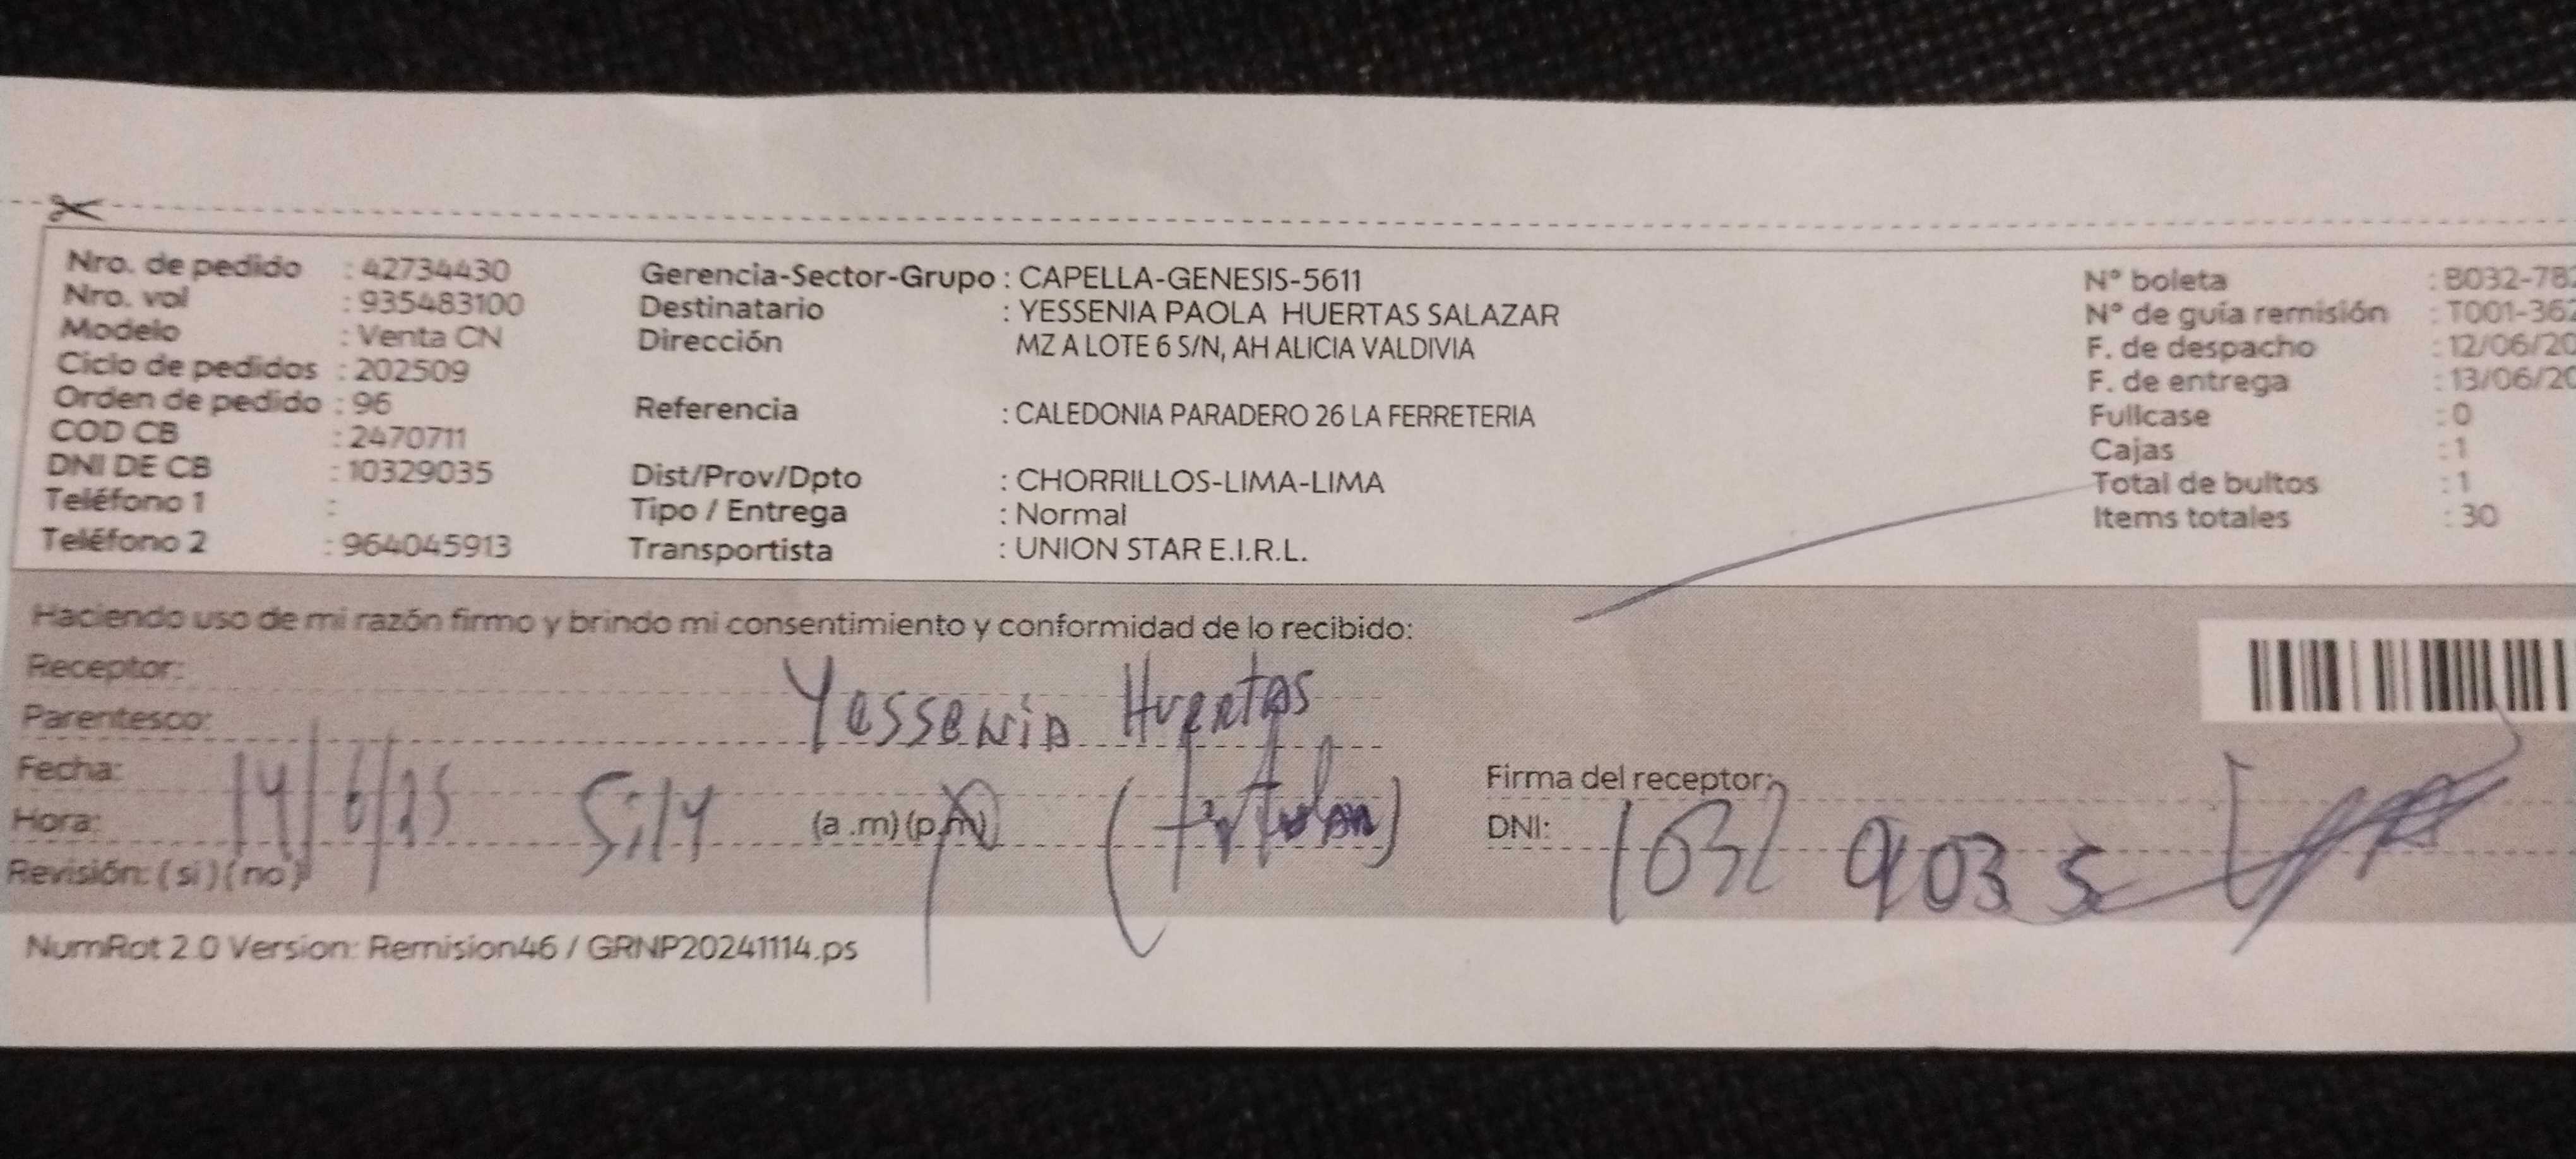 Nro. de pedido : 42734430
Nro. vol : 935483100
Modelo : Venta CN
Ciclo de pedidos : 202509
Orden de pedido : 96
COD CB : 2470711
DNI DE CB : 10329035
Teléfono 1 :
Teléfono 2 : 964045913
Gerencia-Sector-Grupo : CAPELLA-GENESIS-5611
Destinatario : YESSENIA PAOLA HUERTAS SALAZAR
Dirección MZ A LOTE 6 S/N, AH ALICIA VALDIVIA
Referencia : CALEDONIA PARADERO 26 LA FERRETERIA
Dist/Prov/Dpto : CHORRILLOS-LIMA-LIMA
Tipo / Entrega : Normal
Transportista : UNION STAR E.I.R.L.
N° boleta : B032-782
N° de guía remisión : T001-362
F. de despacho : 12/06/20
F. de entrega : 13/06/20
Fullcase : 0
Cajas : 1
Total de bultos : 1
Items totales : 30
Haciendo uso de mi razón firmo y brindo mi consentimiento y conformidad de lo recibido:
Receptor: Yessenia Huertas
Parentesco:
Fecha: 14/6/25
Hora: 5:14 (a .m) (p.m)
Revisión: (si) (no)
Firma del receptor:
DNI: 10329035
NumRot 2.0 Version: Remision46 / GRNP20241114.ps